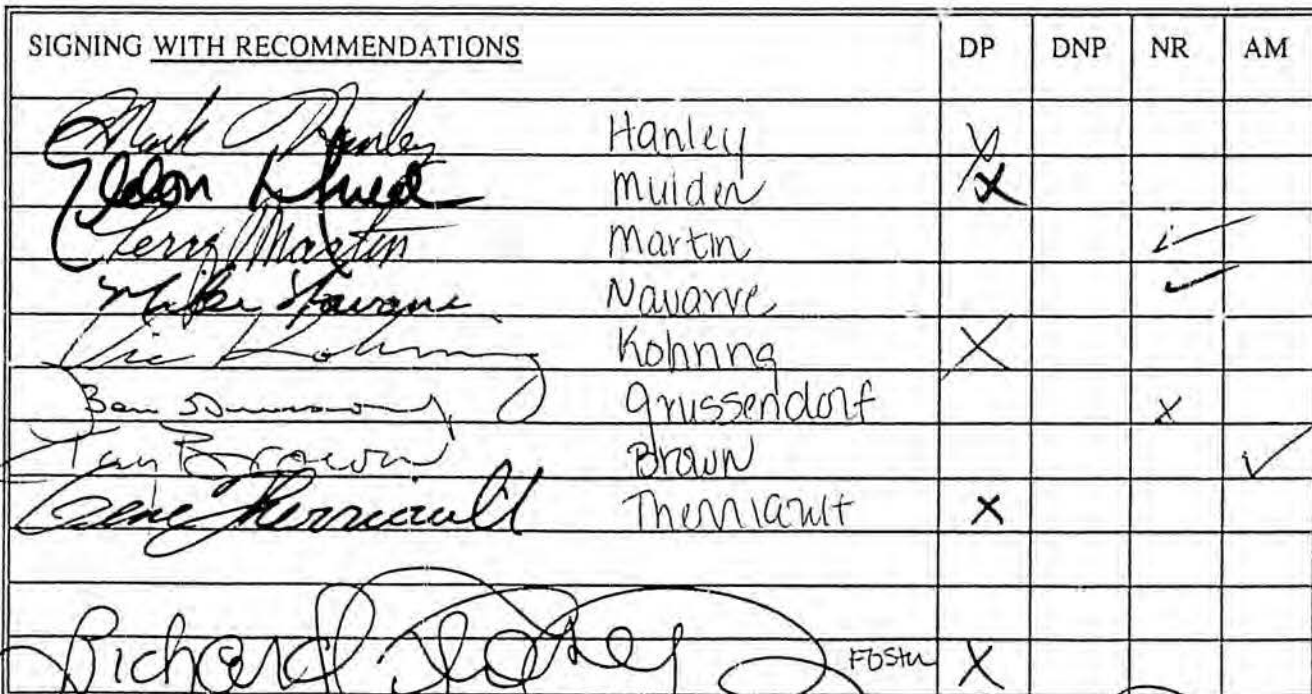 SIGNING WITH RECOMMENDATIONS DP DNP NR AM
Mark Hanley Hanley X
Eldon Mulder X
Terry Martin Martin ✓
Mike Navarre Navarre ✓
Vic Kohring Kohring X
Ben Grussendorf X
Brown Brown ✓
Gene Therriault Therriault X
Richard Foster Foster X